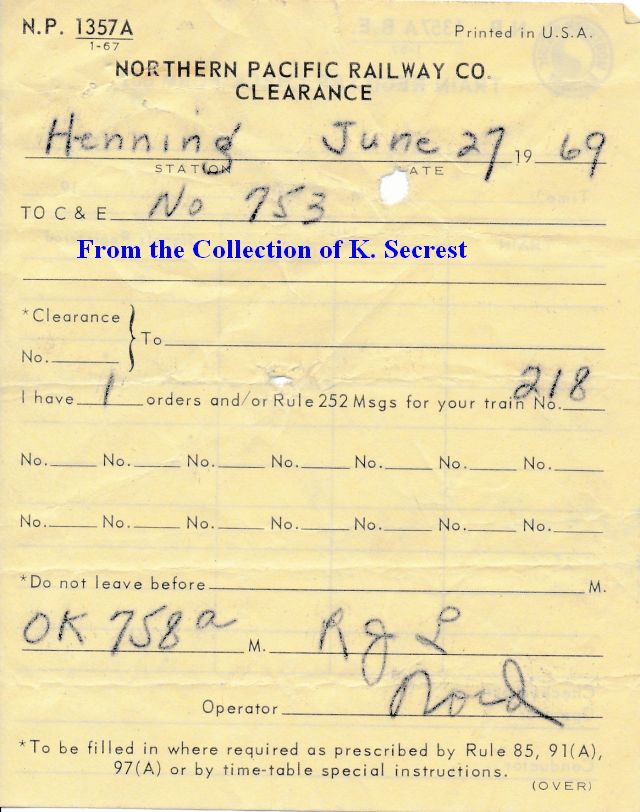 N.P. 1357A Printed in U.S.A.
1-67
NORTHERN PACIFIC RAILWAY CO.
CLEARANCE
Henning June 27 19 69
STATION DATE
TO C & E No 753
From the Collection of K. Secrest
*Clearance
No. To
I have 1 orders and/or Rule 252 Msgs for your train No. 218
No. No. No. No. No. No. No.
No. No. No. No. No. No. No.
*Do not leave before M.
OK 758a M. RJL
Operator Nord
*To be filled in where required as prescribed by Rule 85, 91(A),
97(A) or by time-table special instructions.
(OVER)